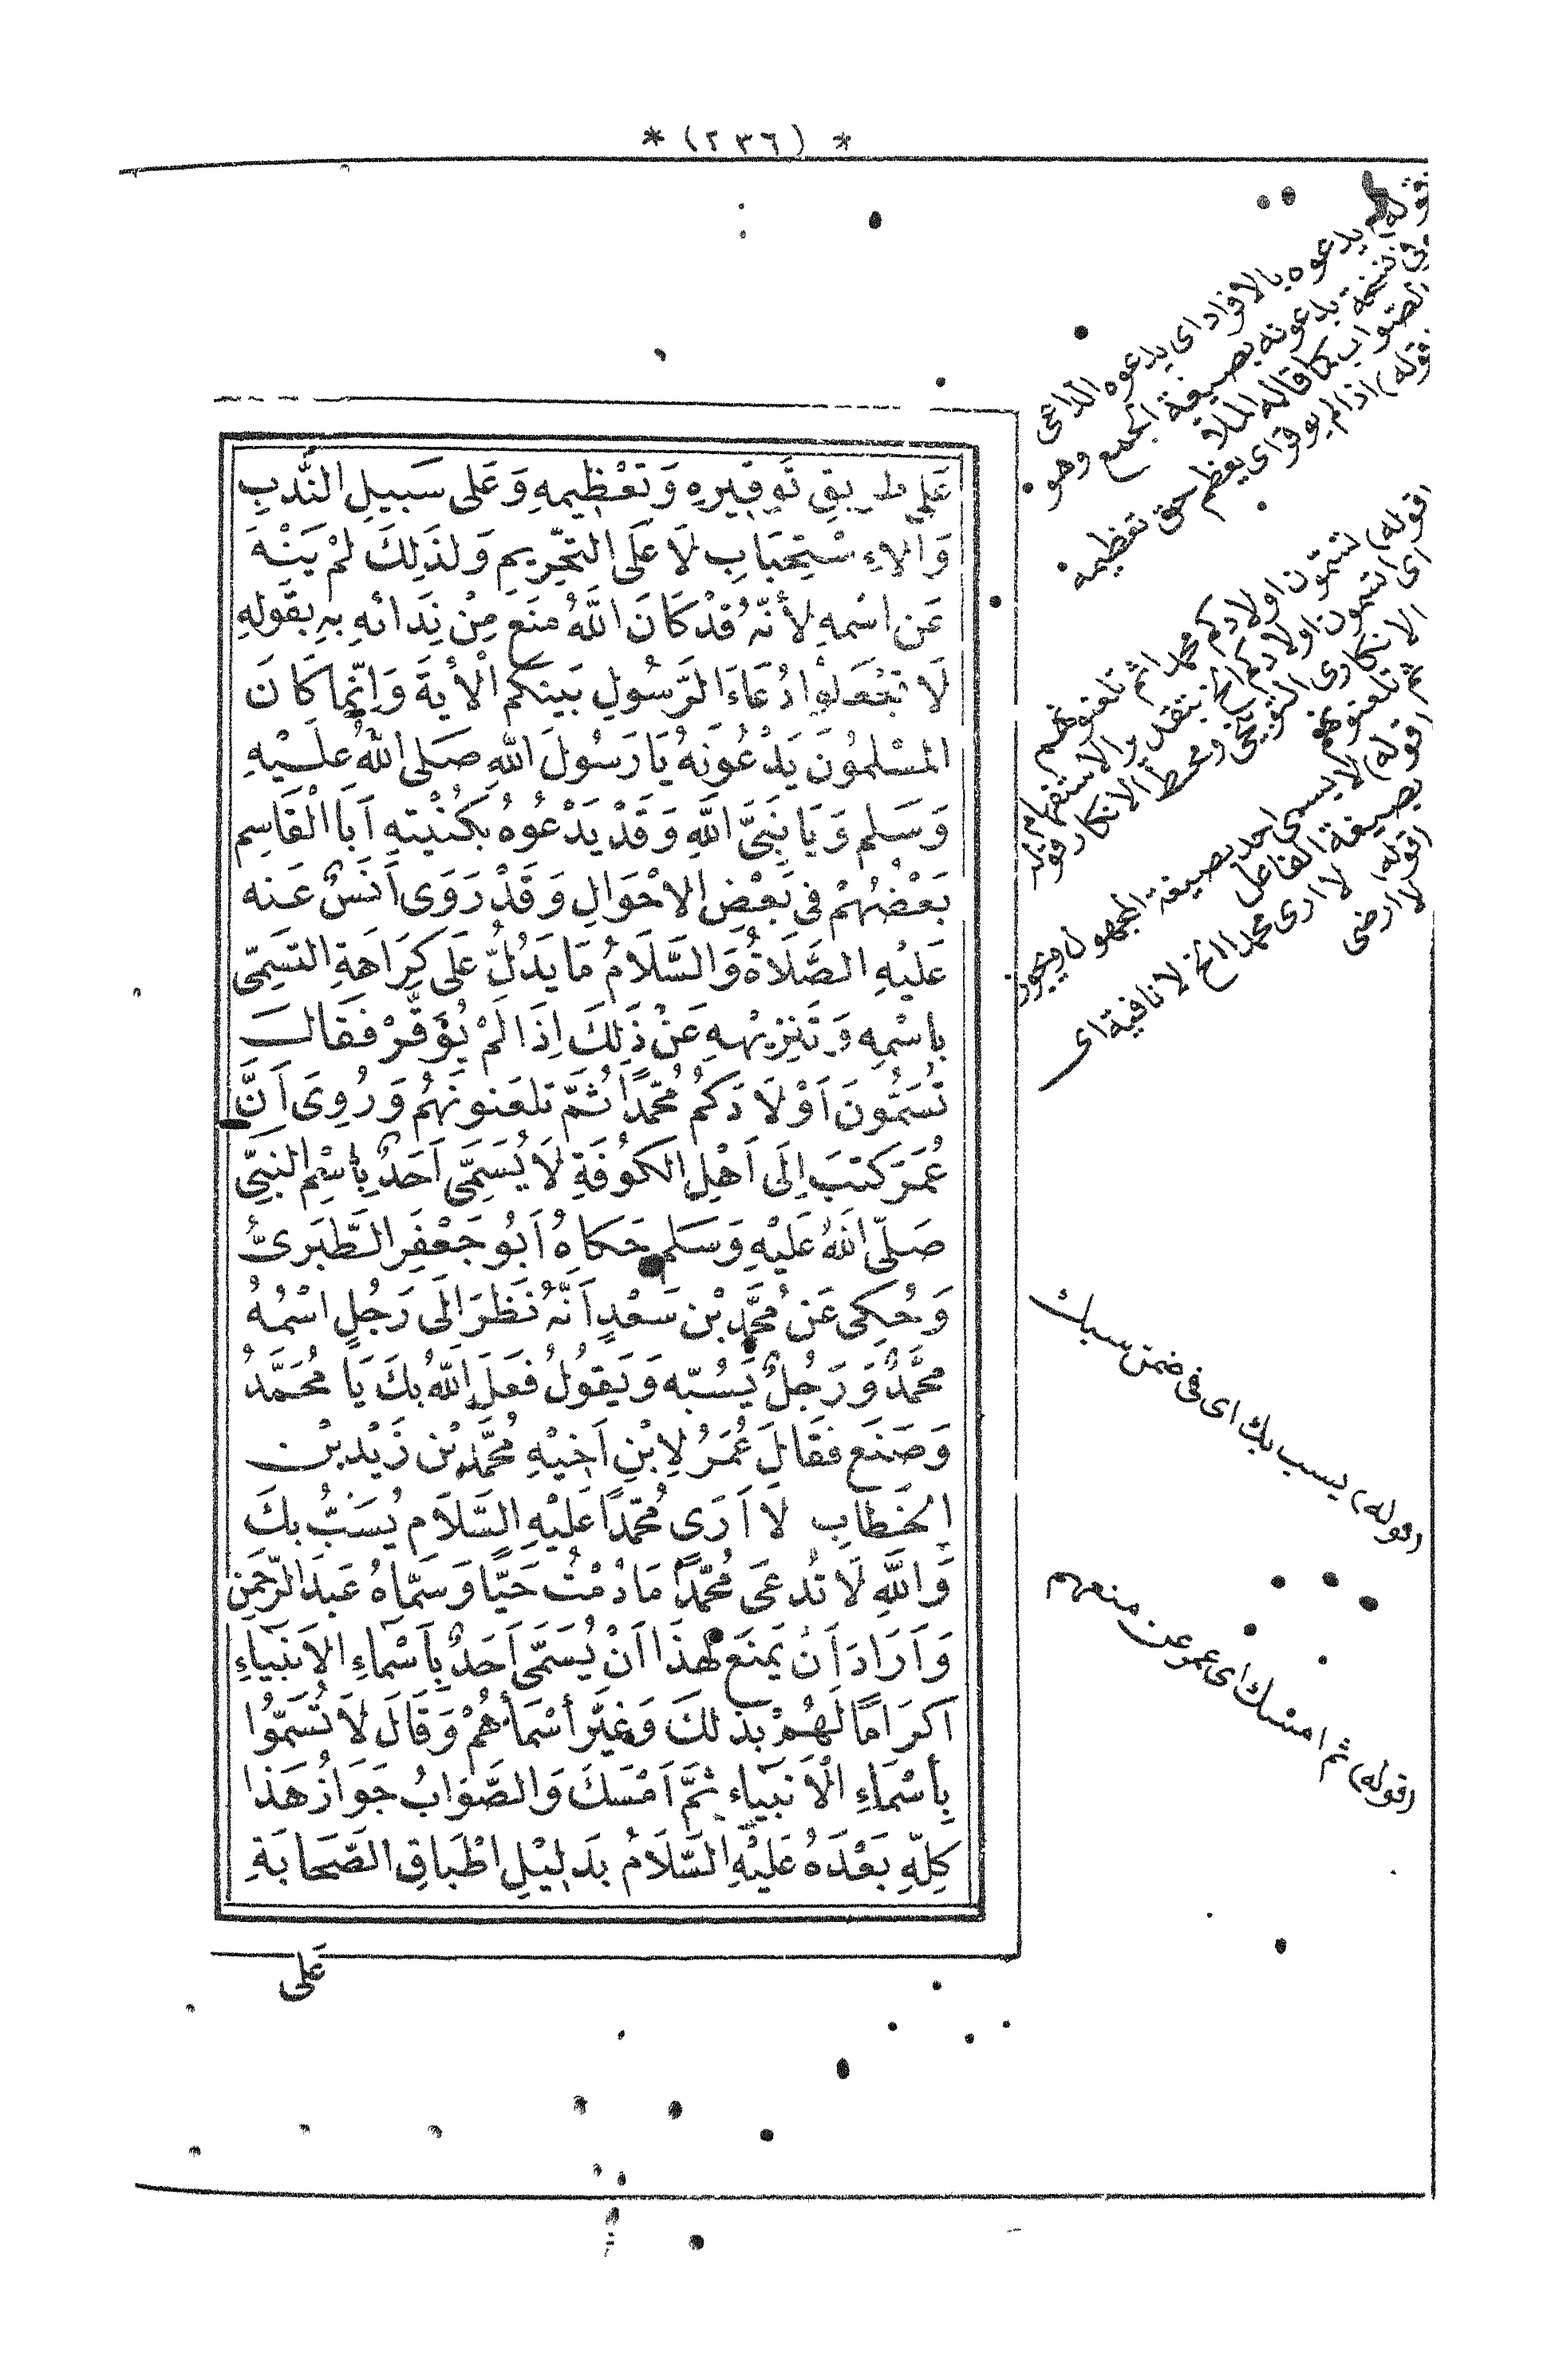 * (٢٣٦) *
عَلٰى طَرِيقِ تَوْقِيرِهِ وَتَعْظِيمِهِ وَعَلٰى سَبِيلِ النَّدْبِ
وَالْاِسْتِحْبَابِ لَا عَلَى التَّحْرِيمِ وَلِذٰلِكَ لَمْ يَنْهَ
عَنِ اسْمِهِ لِأَنَّهُ قَدْ كَانَ اللهُ مَنَعَ مِنْ نِدَائِهِ بِهِ بِقَوْلِهِ
لَا تَجْعَلُوْا دُعَاءَ الرَّسُولِ بَيْنَكُمْ الْاٰيَةَ وَاِنَّمَا كَانَ
الْمُسْلِمُوْنَ يَدْعُوْنَهُ يَا رَسُوْلَ اللهِ صَلَّى اللهُ عَلَيْهِ
وَسَلَّم وَيَا نَبِىَّ اللهِ وَقَدْ يَدْعُوْهُ بِكُنْيَتِهِ اَبَا الْقَاسِمِ
بَعْضُهُمْ فِى بَعْضِ الْاَحْوَالِ وَقَدْ رَوَى اَنَسٌ عَنْهُ
عَلَيْهِ الصَّلَاةُ وَالسَّلَامُ مَا يَدُلُّ عَلَى كَرَاهَةِ التَّسَمِّى
بِاسْمِهِ وَتَنْزِيْهِهِ عَنْ ذٰلِكَ اِذَا لَمْ يُوَقَّرْ فَقَالَ
تُسَمُّوْنَ اَوْلَادَكُمْ مُحَمَّدًا ثُمَّ تَلْعَنُونَهُمْ وَرُوِىَ اَنَّ
عُمَرَ كَتَبَ اِلَى اَهْلِ الْكُوْفَةِ لَا يُسَمَّى اَحَدٌ بِاسْمِ النَّبِىِّ
صَلَّى اللهُ عَلَيْهِ وَسَلَّم حَكَاهُ اَبُو جَعْفَرٍ الطَّبَرِىُّ
وَحُكِىَ عَنْ مُحَمَّدِ بْنِ سَعْدٍ اَنَّهُ نَظَرَ اِلَى رَجُلٍ اسْمُهُ
مُحَمَّدٌ وَرَجُلٌ يَسُبُّهُ وَيَقُوْلُ فَعَلَ اللهُ بِكَ يَا مُحَمَّدُ
وَصَنَعَ فَقَالَ عُمَرُ لِابْنِ اَخِيْهِ مُحَمَّدِ بْنِ زَيْدِ بْنِ
الْخَطَّابِ لَا اَرَى مُحَمَّدًا عَلَيْهِ السَّلَام يُسَبُّ بِكَ
وَاللهِ لَا تُدْعَى مُحَمَّدًا مَا دُمْتُ حَيًّا وَسَمَّاهُ عَبْدَ الرَّحْمٰنِ
وَاَرَادَ اَنْ يَمْنَعَ لِهٰذَا اَنْ يُسَمَّى اَحَدٌ بِاَسْمَاءِ الْاَنْبِيَاءِ
اِكْرَامًا لَهُمْ بِذٰلِكَ وَغَيَّرَ أَسْمَاءَهُمْ وَقَالَ لَا تُسَمُّوْا
بِأَسْمَاءِ الْاَنْبِيَاءِ ثُمَّ اَمْسَكَ وَالصَّوَابُ جَوَازُ هٰذَا
كُلِّهِ بَعْدَهُ عَلَيْهِ السَّلَامُ بِدَلِيْلِ اِطْبَاقِ الصَّحَابَةِ
عَلَى
(قوله) يدعوه بالافراد اى يدعوه الداعى
وفى نسخة يدعونه بصيغة الجمع وهو
الصواب كما قاله الملا
(قوله) اذا لم يوقر اى يعظم حق تعظيمه
(قوله) تسمّون اولادكم محمدا ثم تلعنونهم
اى اتسمون اولادكم الخ بتقدير الاستفهام
الانكارى التوبيخى ومحط الانكار قوله
ثم تلعنونهم
(قوله) لا يسمى احد بصيغة المجهول ويجوز
بصيغة الفاعل
(قوله) لا ارى محمدا الخ لا نافية اى
لا ارضى
(قوله) يسب بك اى فى ضمن سبك
(قوله) ثم امسك اى عمر عن منعهم